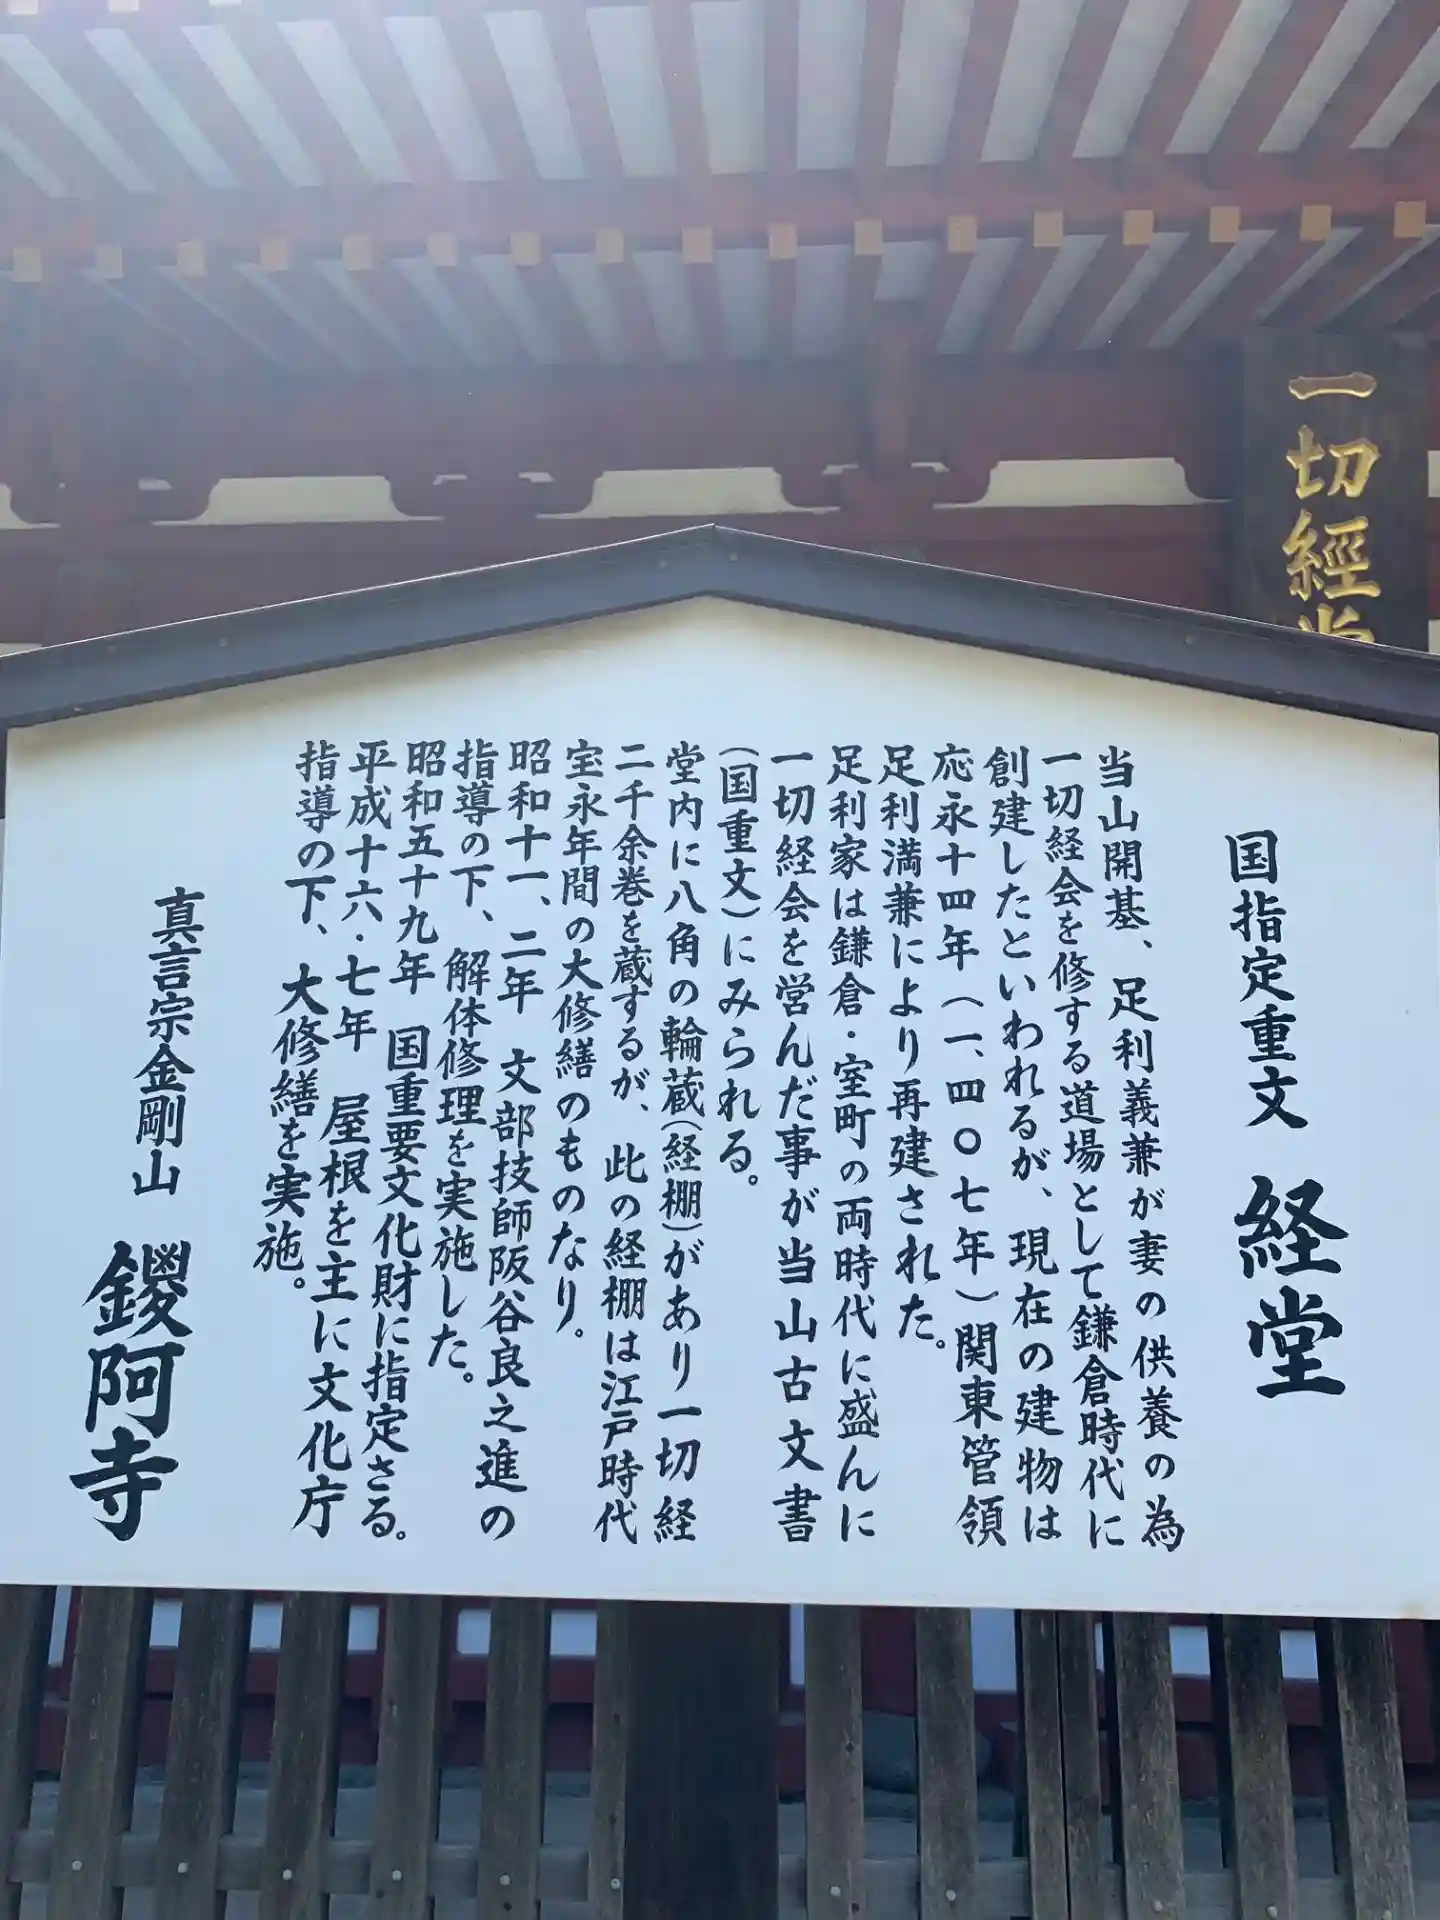 一切經堂
国指定重文 経堂
当山開基、足利義兼が妻の供養の為
一切経会を修する道場として鎌倉時代に
創建したといわれるが、現在の建物は
応永十四年(一、四〇七年)関東管領
足利満兼により再建された。
足利家は鎌倉・室町の両時代に盛んに
一切経会を営んだ事が当山古文書
(国重文)にみられる。
堂内に八角の輪蔵(経棚)があり一切経
二千余巻を蔵するが、此の経棚は江戸時代
宝永年間の大修繕のものなり。
昭和十一、二年 文部技師阪谷良之進の
指導の下、解体修理を実施した。
昭和五十九年 国重要文化財に指定さる。
平成十六・七年 屋根を主に文化庁
指導の下、大修繕を実施。
真言宗金剛山 鑁阿寺